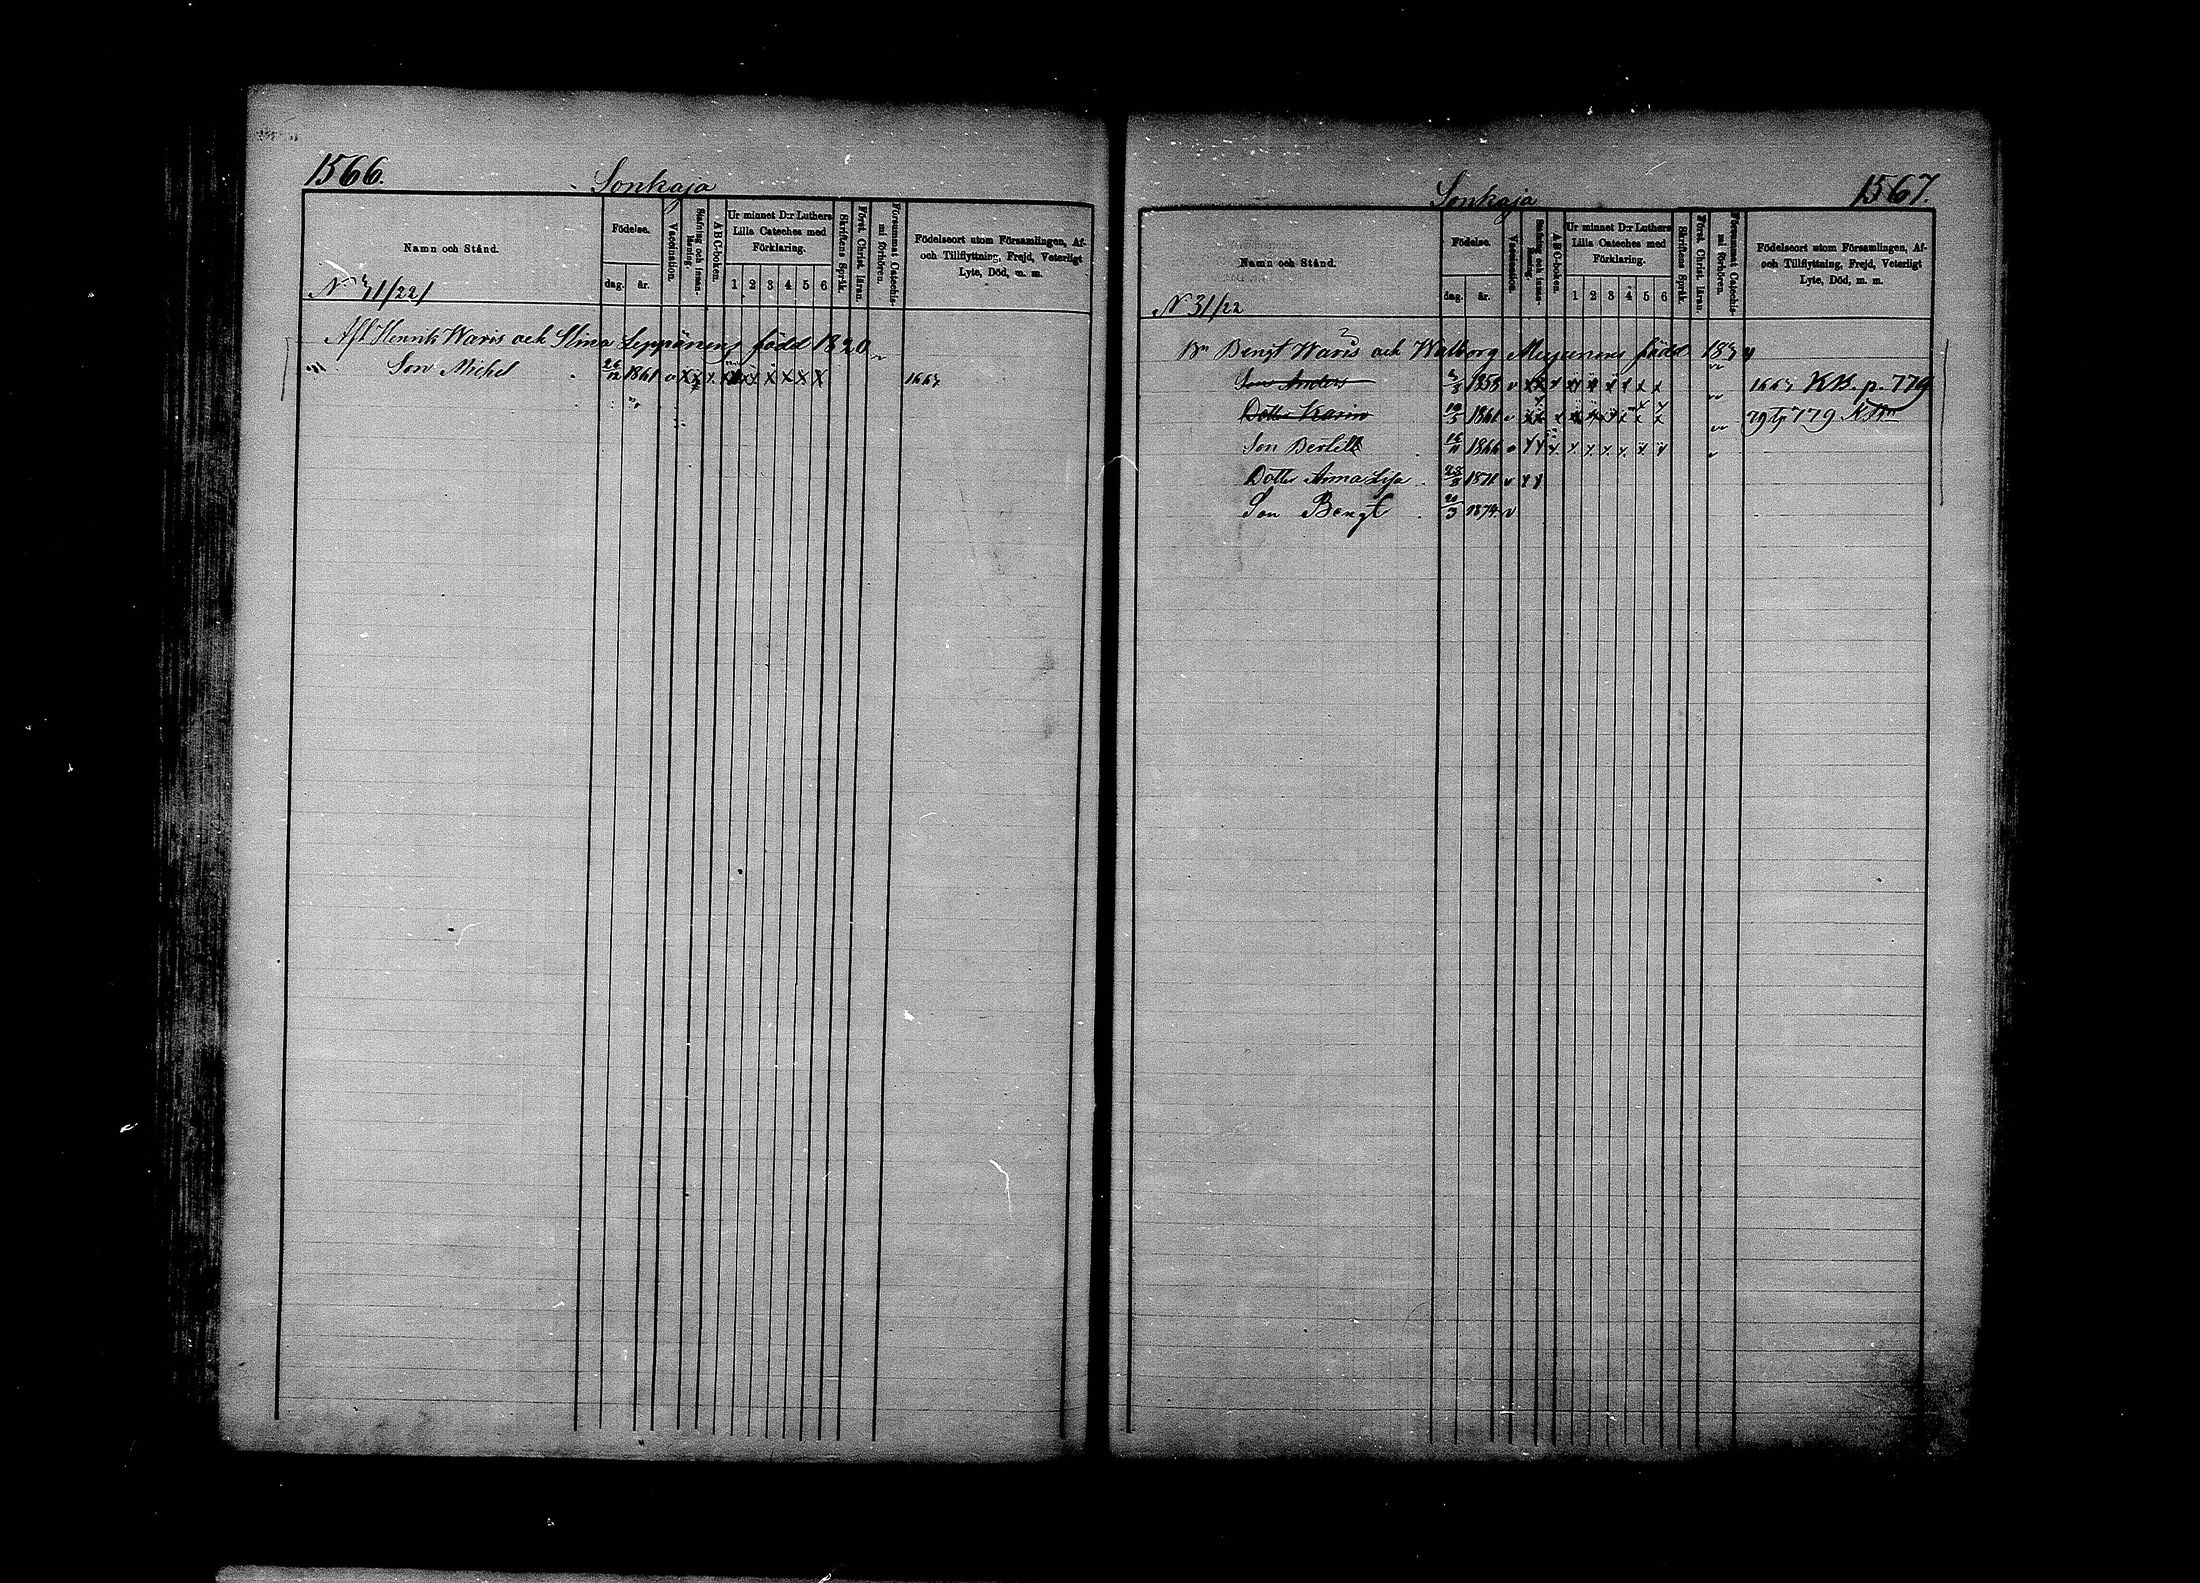 1566.
Sonkaja
Namn och Stånd.
Födelse.
dag.
år.
Vaccination.
Stafning och innan-läsning.
A B C-boken.
Ur minnet D:r Luthers
Lilla Cateches med
Förklaring.
1 2 3 4 5 6
Skriftens Språk.
Förest. Christ. läran.
Försummat Catechis-
mi förhören.
Födelseort utom Församlingen, Af-
och Tillflyttning, Frejd, Veterligt
Lyte, Död, m. m.
N 31/22/
Afl Henrik Waris och Stina Leppänens född 1820
Son Michel 26/12 1861 v x x x x x x x x x 1667
Sonkaja
1567.
Namn och Stånd.
Födelse.
dag.
år.
Vaccination.
Stafning och innan-läsning.
A B C-boken.
Ur minnet D:r Luthers
Lilla Cateches med
Förklaring.
1 2 3 4 5 6
Skriftens Språk.
Förest. Christ. läran.
Försummat Catechis-
mi förhören.
Födelseort utom Församlingen, Af-
och Tillflyttning, Frejd, Veterligt
Lyte, Död, m. m.
N 31/22
Bn Bengt Waris och Walborg född
Son Anders 1858 v x x x x x x x x x 1667 KB. p. 779
Dotter Karin 1861 v x x x x x x x x x 779
Son Bertell 1866 v x x x x x x x x x
Dotter Anna Lisa 1871 v x x
Son Bengt 20/3 1874 v